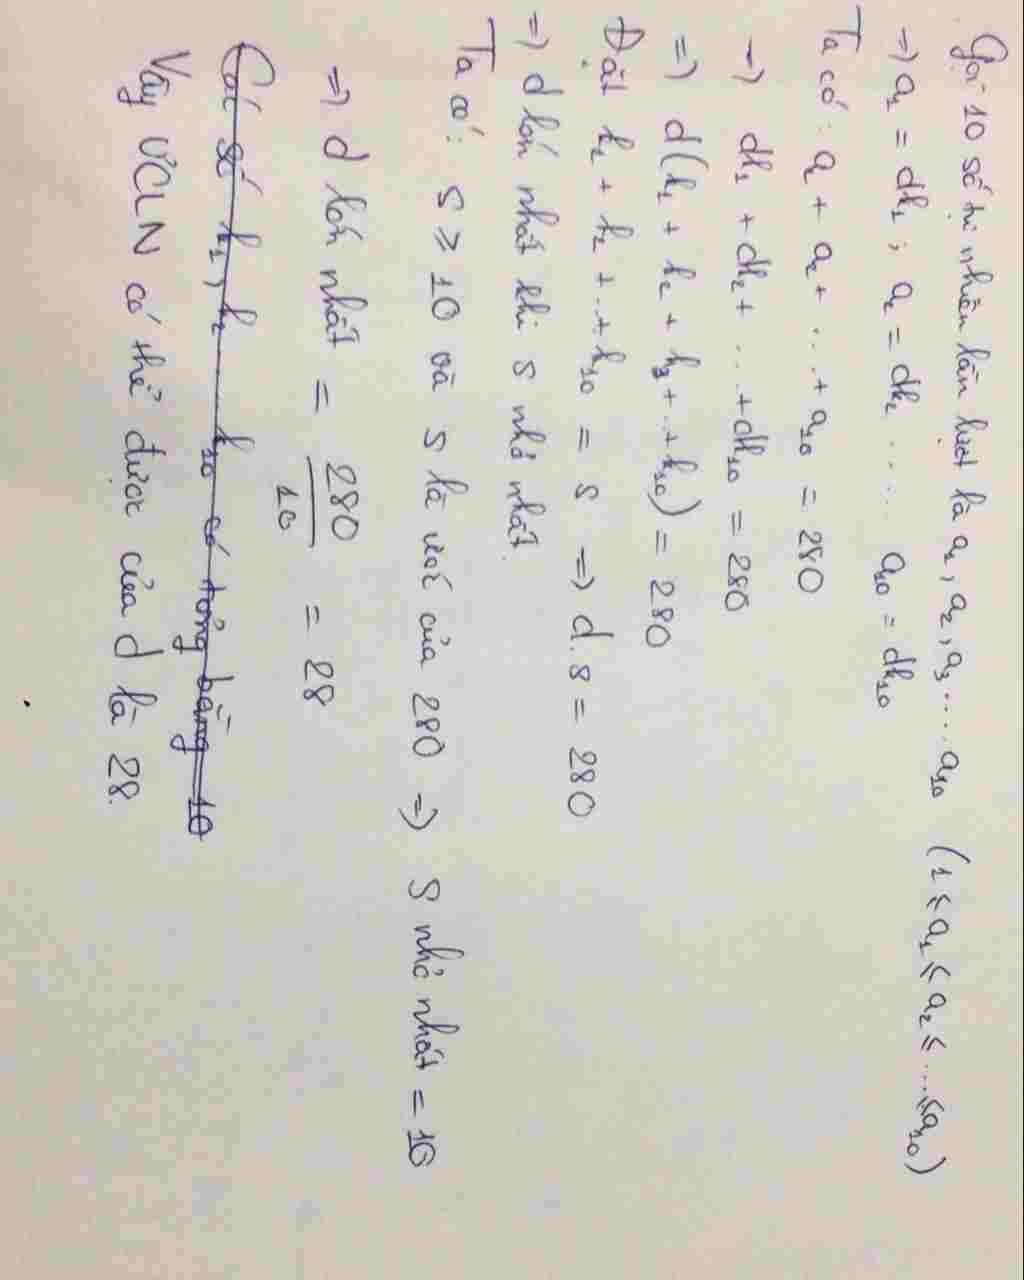 Gọi 10 số tự nhiên lần lượt là a₁, a₂, a₃ ..... a₁₀ (1 ≤ a₁ ≤ a₂ ≤ ... ≤ a₁₀)
=> a₁ = dk₁ ; a₂ = dk₂ .... a₁₀ = dk₁₀
Ta có : a₁ + a₂ + ... + a₁₀ = 280
=> dk₁ + dk₂ + ... + dk₁₀ = 280
=> d(k₁ + k₂ + k₃ + .. + k₁₀) = 280
Đặt k₁ + k₂ + .. + k₁₀ = s => d.s = 280
=> d lớn nhất khi s nhỏ nhất.
Ta có : s ≥ 10 và s là ước của 280 => s nhỏ nhất = 10
=> d lớn nhất = 280/10 = 28
Các số k₁, k₂ k₁₀ có tổng bằng 10
Vậy ƯCLN có thể được của d là 28.